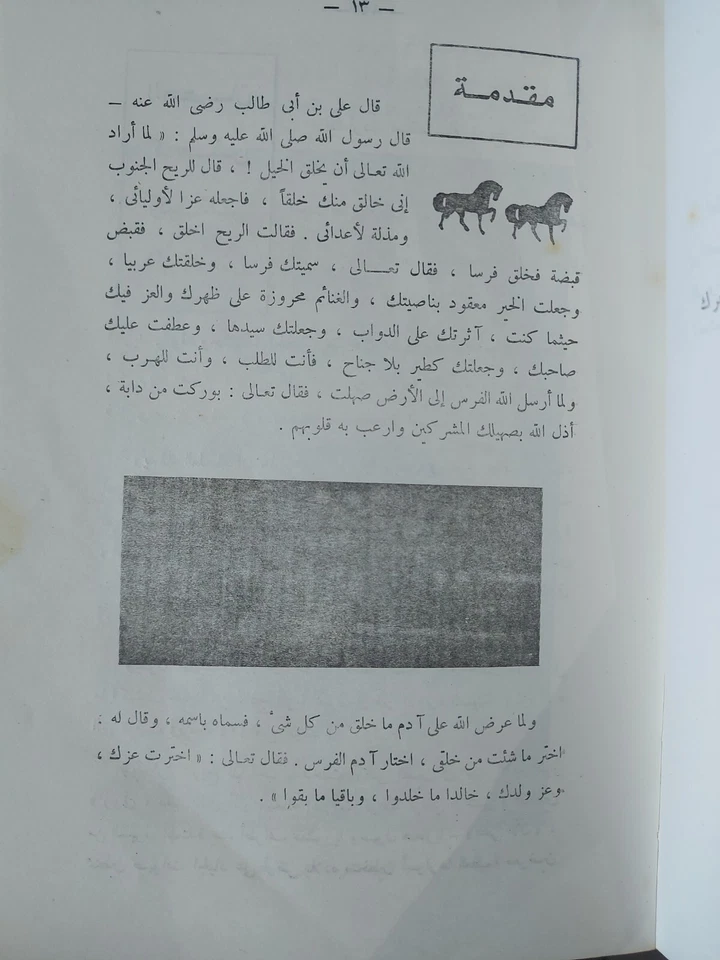 — ١٣ —
مقدمة
قال على بن أبى طالب رضى الله عنه —
قال رسول الله صلى الله عليه وسلم : « لما أراد
الله تعالى أن يخلق الخيل ! ، قال للريح الجنوب
إنى خالق منك خلقاً ، فاجعله عزا لأوليائى ،
ومذلة لأعدائى . فقالت الريح اخلق ، فقبض
قبضة فخلق فرسا ، فقال تعـالى ، سميتك فرسا ، وخلقتك عربيا ،
وجعلت الخير معقود بناصيتك ، والغنائم محروزة على ظهرك والعز فيك
حيثما كنت ، آثرتك على الدواب ، وجعلتك سيدها ، وعطفت عليك
صاحبك ، وجعلتك كطير بلا جناح ، فأنت للطلب ، وأنت للهرب ،
ولما أرسل الله الفرس إلى الأرض صهلت ، فقال تعالى : بوركت من دابة ،
أذل الله بصهيلك المشركين وارعب به قلوبهم .
ولما عرض الله على آدم ما خلق من كل شئ ، فسماه باسمه ، وقال له :
اختر ما شئت من خلقى ، اختار آدم الفرس . فقال تعالى : « اخترت عزك ،
وعز ولدك ، خالدا ما خلدوا ، وباقيا ما بقوا » .